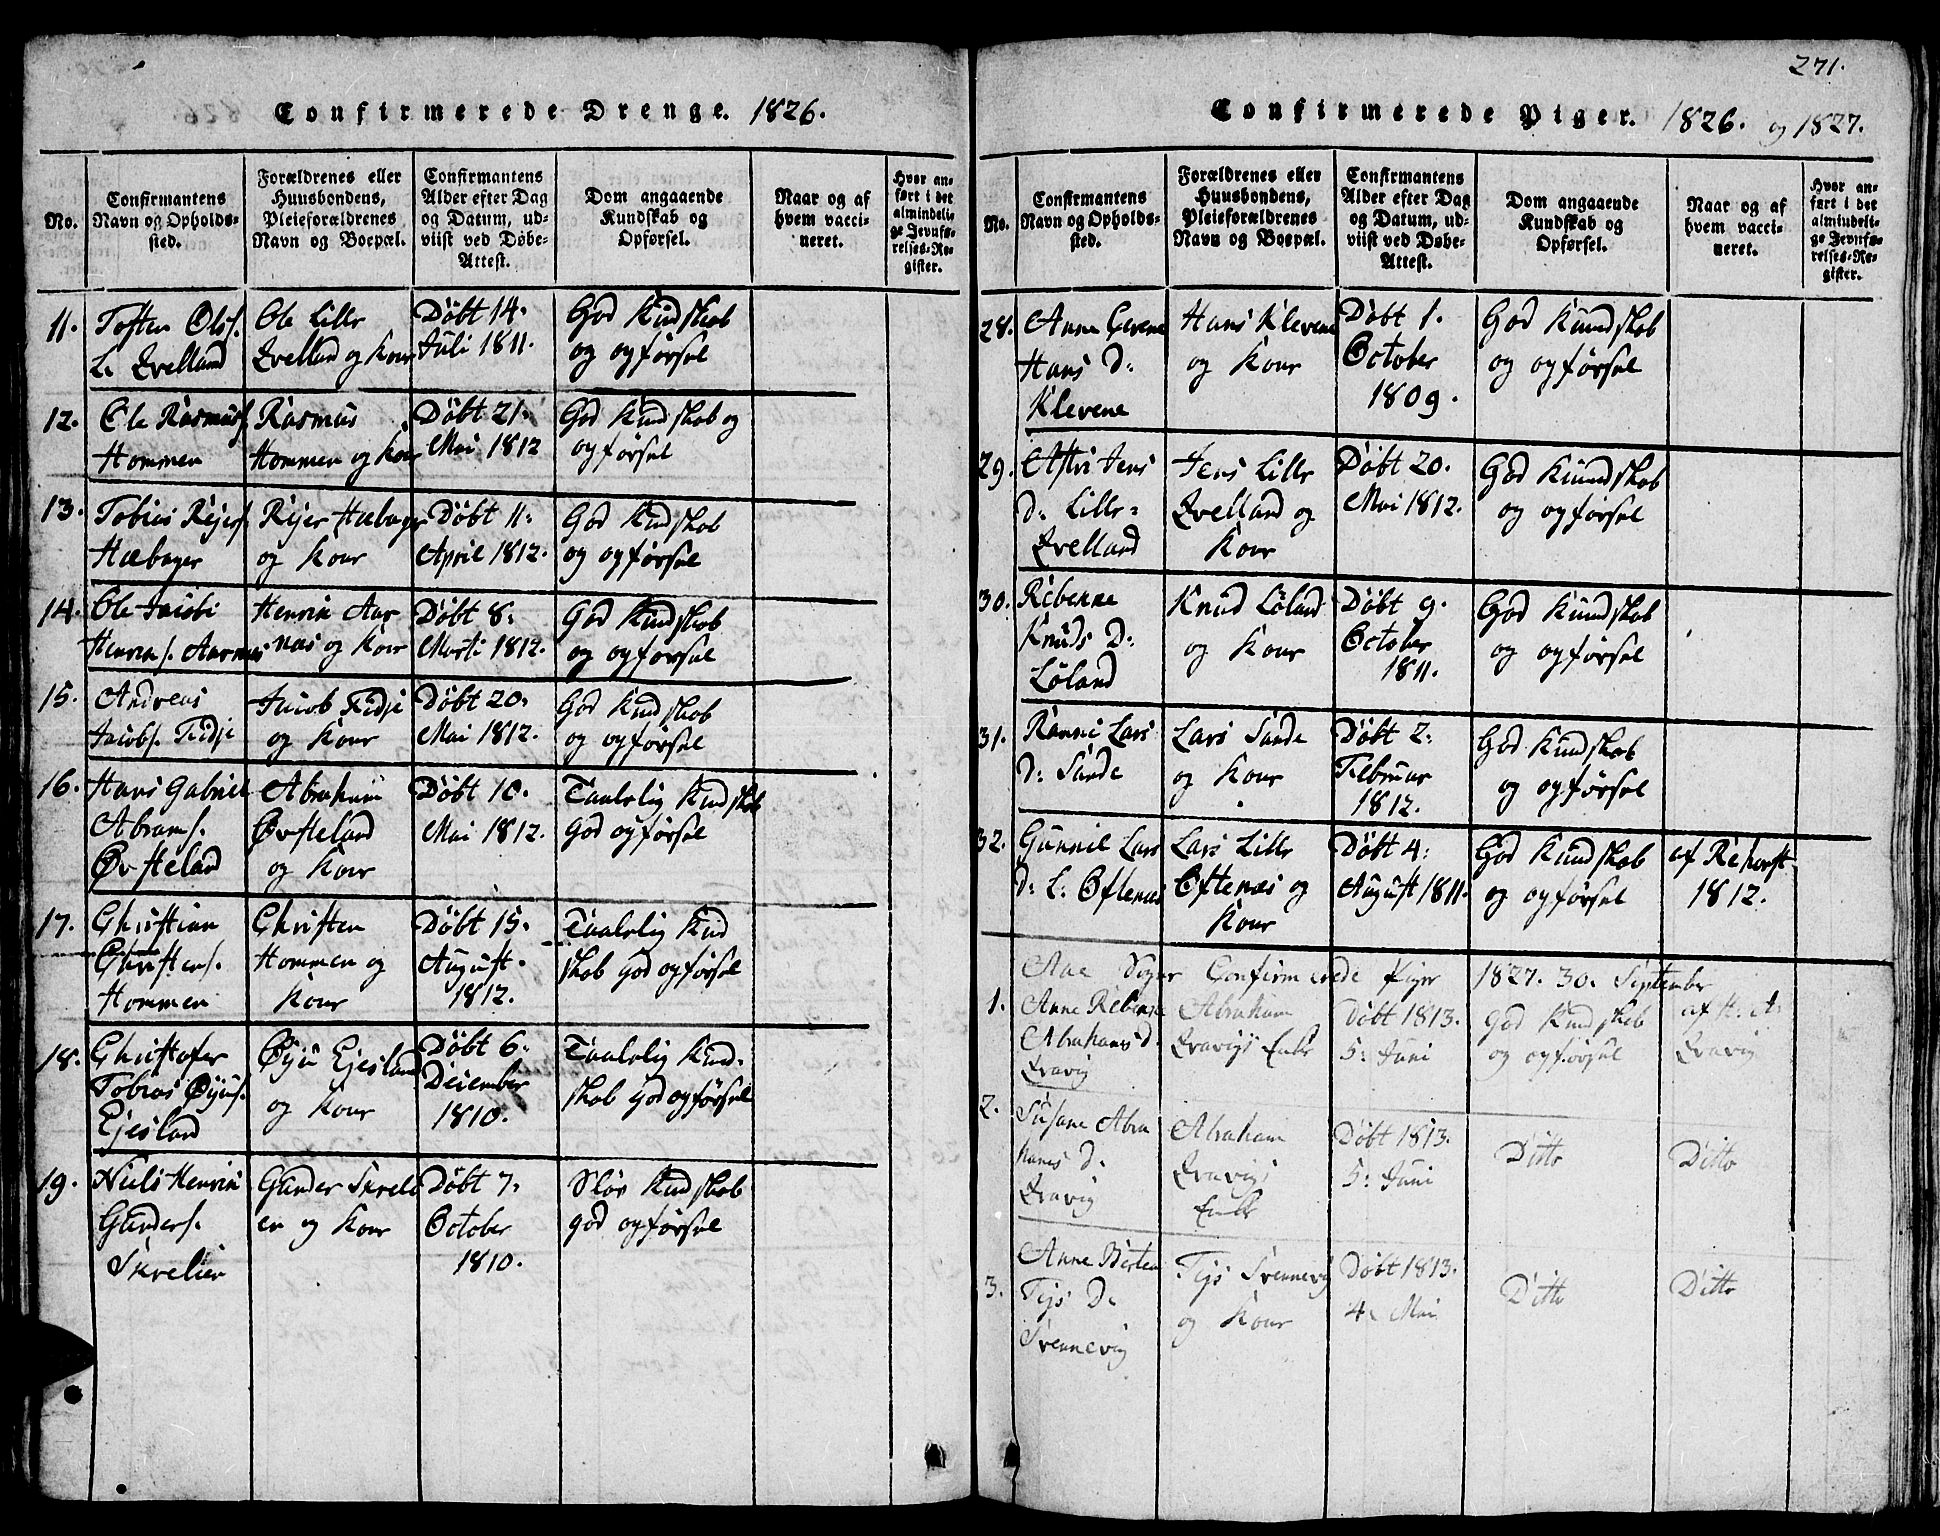 271.
Confirmerede Drenge. 1826.
No.
Confirmantens
Navn og Opholds-
sted.
Forældrenes eller
Huusbondens,
Pleieforældrenes
Navn og Boepæl.
Confirmantens
Alder efter Dag
og Datum, ud-
viist ved Døbe-
Attest.
Dom angaaende
Kundskab og
Opførsel.
Naar og af
hvem vacci-
neret.
Hvor an-
ført i det
almindeli-
ge Jevnfø-
relses-Re-
gister.
11.
Tosten Ols s.
L. Qvelland
Ole Lille
Qvelland og Kone
Døbt 14.
Juli 1811.
God Kundskab
og opførsel
12.
Ole Rasmus s.
Hommen
Rasmus
Hommen og Kone
Døbt 21.
Mai 1812
God Kundskab og
opførsel
13.
Tobias Rejers s.
Hæbager
Rejer Hæbager
og Kone
Døbt 11.
April 1812.
God Kundskab
og opførsel
14.
Ole Jacobi
Henrik s. Aarnæs
Henrik Aar
næs og Kone
Døbt 8.
Marti 1812.
God Kundskab
og opførsel
15.
Andreas
Jacobs. Fidje
Jacob Fidje
og Kone
Døbt 20.
Mai 1812.
God Kundskab
og opførsel
16.
Hans Gabriel
Abrams.
Øvsteland
Abraham
Øvsteland
og Kone
Døbt 10.
Mai 1812.
Taalelig Kundskab
God opførsel
17.
Christian
Christens.
Hommen
Christen
Hommen og
Kone
Døbt 15.
August.
1812.
Taalelig Kund
skab God opførsel
18.
Christofer
Tobias Øyus.
Ejesland
Øyu Ejesland
og Kone
Døbt 6.
December
1810.
Taalelig Kund-
skab God opførsel
19.
Niels Henrik
Gunders.
Skrelien
Gunder Skreli
en og Kone
Døbt 7.
October
1810.
Sløv Kundskab
god opførsel
Confirmerede Piger. 1826. og 1827.
No.
Confirmantens
Navn og Opholds-
sted.
Forældrenes eller
Huusbondens,
Pleieforældrenes
Navn og Boepæl.
Confirmantens
Alder efter Dag
og Datum, ud-
viist ved Døbe-
Attest.
Dom angaaende
Kundskab og
Opførsel.
Naar og af
hvem vacci-
neret.
Hvor an-
ført i det
almindeli-
ge Jevnfø-
relses-Re-
gister.
28.
Anne
Hans D:
Klevene
Hans Klevene
og Kone
Døbt 1.
October
1809.
God Kundskab
og opførsel
29.
Astri Jens
D: Lille-
Qvelland
Jens Lille
Qvelland og
Kone
Døbt 20.
Mai 1812.
God Kundskab
og opførsel
30.
Rebenne
Knuds D:
Løland
Knud Løland
og Kone
Døbt 9.
October
1811.
God Kundskab
og opførsel
31.
Ranni Lars
D: Sande
Lars Sande
og Kone
Døbt 2.
Februar
1812.
God Kundskab
og opførsel
32.
Gunnil Lars
D: L: Oftenæs
Lars Lille
Oftenæs og
Kone
Døbt 4.
August 1811.
God Kundskab
og opførsel
af Rehorst
1812.
Aae Sogns Confirmerede Piger 1827. 30. September
1.
Anne Rebenne
Abrahams d.
Qvavig
Abraham
Qvavigs Enke
Døbt 1813.
5. Juni
God Kundskab
og opførsel
af H. A.
Qvavig
2.
Susane Abra
hams D:
Qvavig
Abraham
Qvavigs
Enke
Døbt 1813.
5. Juni
Ditto
Ditto
3.
Anne Birten
Tejs D:
Svennevig
Tejs Svennevig
og Kone
Døbt 1813.
4. Mai
Ditto
Ditto